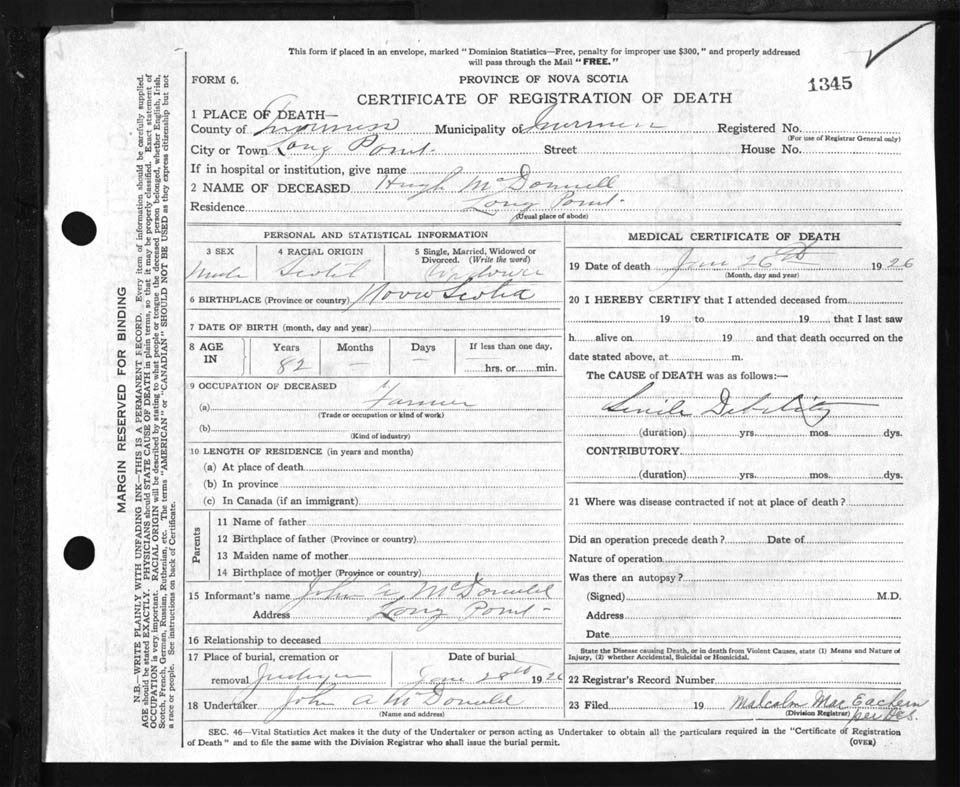 This form if placed in an envelope, marked "Dominion Statistics—Free, penalty for improper use $300," and properly addressed
will pass through the Mail "FREE."
FORM 6.
PROVINCE OF NOVA SCOTIA
1345
CERTIFICATE OF REGISTRATION OF DEATH
1 PLACE OF DEATH—
County of Inverness Municipality of Inverness Registered No.
(For use of Registrar General only)
City or Town Long Point. Street House No.
If in hospital or institution, give name
2 NAME OF DECEASED Hugh McDonnell
Residence Long Point.
(Usual place of abode)
PERSONAL AND STATISTICAL INFORMATION
3 SEX 4 RACIAL ORIGIN 5 Single, Married, Widowed or
Divorced. (Write the word)
Male Scotch Widower
6 BIRTHPLACE (Province or country) Nova Scotia
7 DATE OF BIRTH (month, day and year)
8 AGE IN Years Months Days If less than one day,
82 — — hrs. or min.
9 OCCUPATION OF DECEASED
(a) Farmer
(Trade or occupation or kind of work)
(b)
(Kind of industry)
10 LENGTH OF RESIDENCE (in years and months)
(a) At place of death
(b) In province
(c) In Canada (if an immigrant)
Parents
11 Name of father
12 Birthplace of father (Province or country)
13 Maiden name of mother
14 Birthplace of mother (Province or country)
15 Informant's name John A McDonnell
Address Long Point
16 Relationship to deceased
17 Place of burial, cremation or Date of burial
removal Judique June 28th 1926
18 Undertaker John A McDonnell
(Name and address)
MEDICAL CERTIFICATE OF DEATH
19 Date of death 26th 1926
(Month, day and year)
20 I HEREBY CERTIFY that I attended deceased from
19 to 19 that I last saw
h alive on 19 and that death occurred on the
date stated above, at m.
The CAUSE of DEATH was as follows:—
Senile Debility
(duration) yrs. mos. dys.
CONTRIBUTORY
(duration) yrs. mos. dys.
21 Where was disease contracted if not at place of death?
Did an operation precede death? Date of
Nature of operation
Was there an autopsy?
(Signed) M.D.
Address
Date
State the Disease causing Death, or in death from Violent Causes, state (1) Means and Nature of
Injury, (2) whether Accidental, Suicidal or Homicidal.
22 Registrar's Record Number
23 Filed 19 Malcolm MacEachern
(Division Registrar) per
SEC. 46—Vital Statistics Act makes it the duty of the Undertaker or person acting as Undertaker to obtain all the particulars required in the "Certificate of Registration
of Death" and to file the same with the Division Registrar who shall issue the burial permit.
(OVER)
MARGIN RESERVED FOR BINDING
N.B.—WRITE PLAINLY WITH UNFADING INK—THIS IS A PERMANENT RECORD. Every item of information should be carefully supplied.
AGE should be stated EXACTLY. PHYSICIANS should STATE CAUSE OF DEATH in plain terms, so that it may be properly classified. Exact statement of
OCCUPATION is very important. RACIAL ORIGIN will be described by stating to what people or tongue the deceased person belonged, whether English, Irish,
Scotch, French, German, Russian, Ruthenian, etc. The terms "AMERICAN" or "CANADIAN" SHOULD NOT BE USED as they express citizenship but not
a race or people. See instructions on back of Certificate.